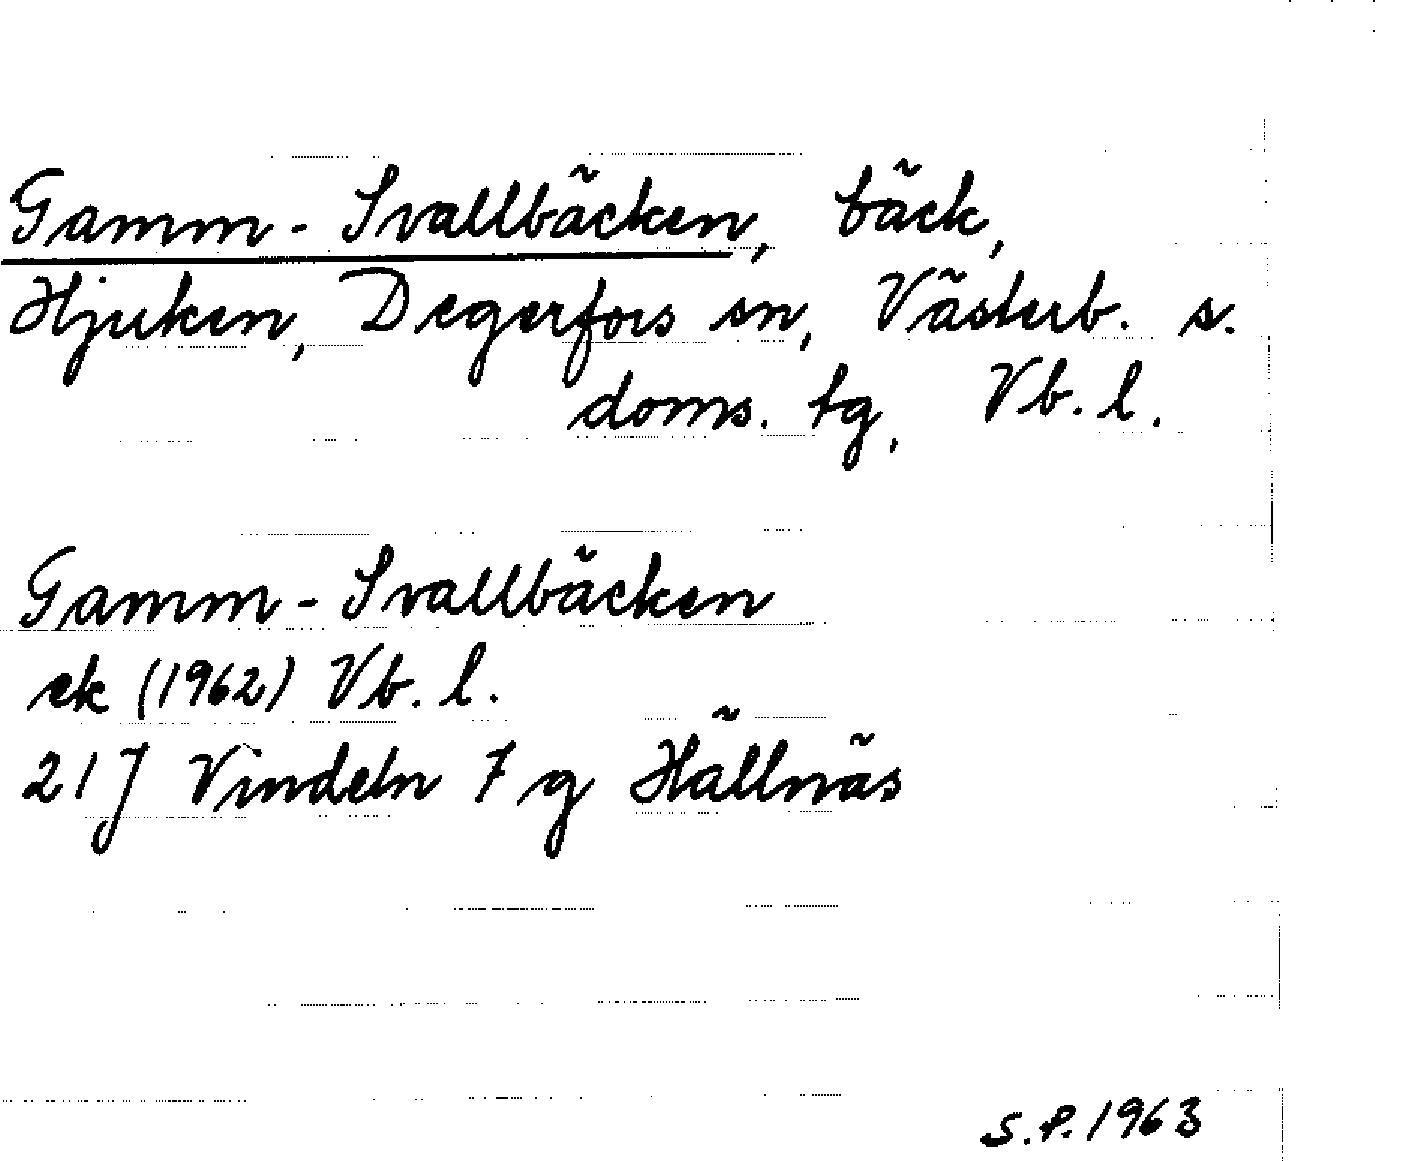 Gamm-Svallbäcken, bäck,
Hjuken, Degerfors sn, Västerb. s.
doms. tg, Vb. l.
Gamm-Svallbäcken
ek (1962) Vb. l.
21J Vindeln 7 g Hällnäs
S.P. 1963